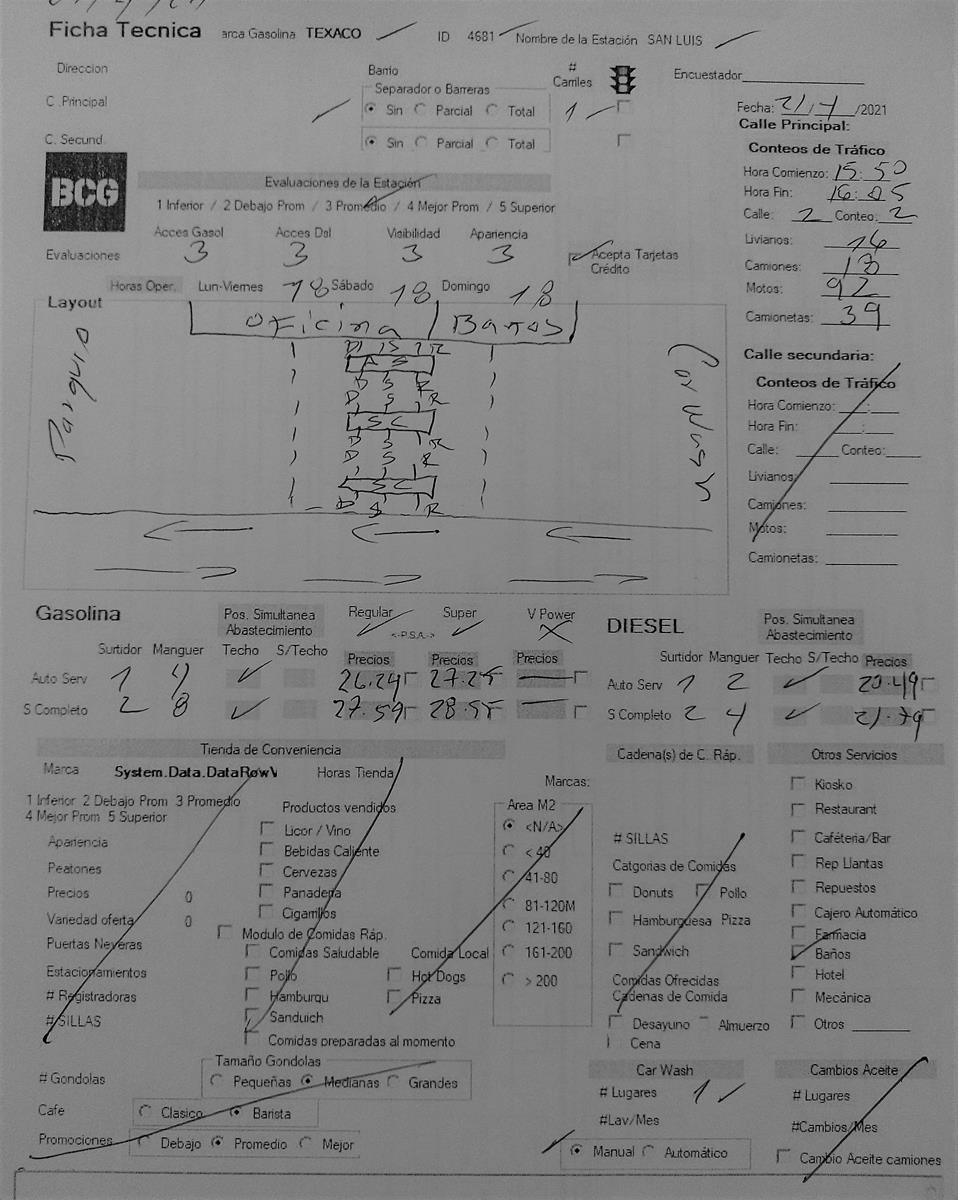 Ficha Tecnica arca Gasolina TEXACO ID 4681 Nombre de la Estación SAN LUIS
Direccion Barrio # Carriles Encuestador
Separador o Barreras
C .Principal Sin Parcial Total 1
C. Secund. Sin Parcial Total
Fecha: 21/7/2021
Calle Principal:
Conteos de Tráfico
Hora Comienzo: 15:50
Hora Fin: 16:05
Calle: 2 Conteo: 2
Livianos: 16
Camiones: 13
Motos: 92
Camionetas: 39
BCG
Evaluaciones de la Estación
1 Inferior / 2 Debajo Prom / 3 Promedio / 4 Mejor Prom / 5 Superior
Acces Gasol Acces Dsl Visibilidad Apariencia
Evaluaciones 3 3 3 3 Acepta Tarjetas Crédito
Horas Oper. Lun-Viernes 18 Sábado 18 Domingo 18
Layout
Oficina Baños
Parqueo
Car Wash
D S R
A S
D S R
D S R
S C
D S R
D S R
S C
D S R
Calle secundaria:
Conteos de Tráfico
Hora Comienzo: __:__
Hora Fin: __:__
Calle: Conteo:
Livianos:
Camiones:
Motos:
Camionetas:
Gasolina Pos. Simultanea Abastecimiento Regular <-P.S.A.-> Super V Power
Surtidor Manguer Techo S/Techo Precios Precios Precios
Auto Serv 1 4 26.24 27.25
S Completo 2 8 27.59 28.55
DIESEL Pos. Simultanea Abastecimiento
Surtidor Manguer Techo S/Techo Precios
Auto Serv 1 2 20.49
S Completo 2 4 21.79
Tienda de Conveniencia
Marca System.Data.DataRowV Horas Tienda
1 Inferior 2 Debajo Prom 3 Promedio
4 Mejor Prom 5 Superior
Apariencia
Peatones
Precios 0
Variedad oferta 0
Puertas Neveras
Estacionamientos
# Registradoras
# SILLAS
Productos vendidos
Licor / Vino
Bebidas Caliente
Cervezas
Panaderia
Cigarrillos
Modulo de Comidas Ráp.
Comidas Saludable Comida Local
Pollo Hot Dogs
Hamburgu Pizza
Sanduich
Comidas preparadas al momento
Marcas:
Area M2
<N/A>
< 40
41-80
81-120M
121-160
161-200
> 200
Cadena(s) de C. Ráp.
# SILLAS
Catgorias de Comidas
Donuts Pollo
Hamburguesa Pizza
Sandwich
Comidas Ofrecidas
Cadenas de Comida
Desayuno Almuerzo
Cena
Otros Servicios
Kiosko
Restaurant
Caféteria/Bar
Rep Llantas
Repuestos
Cajero Automático
Farmacia
Baños
Hotel
Mecánica
Otros
# Gondolas Tamaño Gondolas
Pequeñas Medianas Grandes
Cafe Clasico Barista
Promociones Debajo Promedio Mejor
Car Wash
# Lugares 1
#Lav/Mes
Manual Automático
Cambios Aceite
# Lugares
#Cambios/Mes
Cambio Aceite camiones